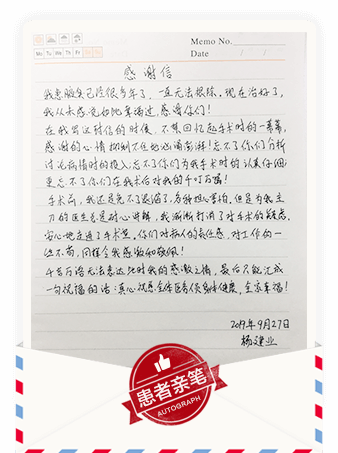 Memo No.
Mo Tu We Th Fr
Date / /
感谢信
我患腋臭已经很多年了，一直无法根除。现在治好了，
我从未感觉如此幸福过，感谢你们！
在我写这封信的时候，不禁回忆起手术时的一幕幕，
感谢的心情抑制不住地汹涌澎湃！忘不了你们分析
讨论病情时的投入；忘不了你们为我手术时的认真仔细；
更忘不了你们在我术后对我的千叮万嘱！
手术前，我还是免不了，各种担心害怕。但是为我主
刀的医生总是耐心讲解，我渐渐打消了对手术的疑虑，
安心地走进了手术室。你们对病人的责任感，对工作的一
丝不苟，同样令我感激和敬佩！
千言万语无法表达此时我的感激之情，最后只能汇成
一句祝福的话：真心祝愿全体医务人员身体健康，全家幸福！
2019年9月27日
杨建业
患者亲笔
AUTOGRAPH